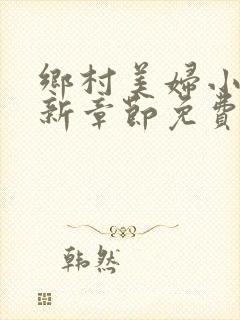 鄉村美婦小
新章節免費
韩然